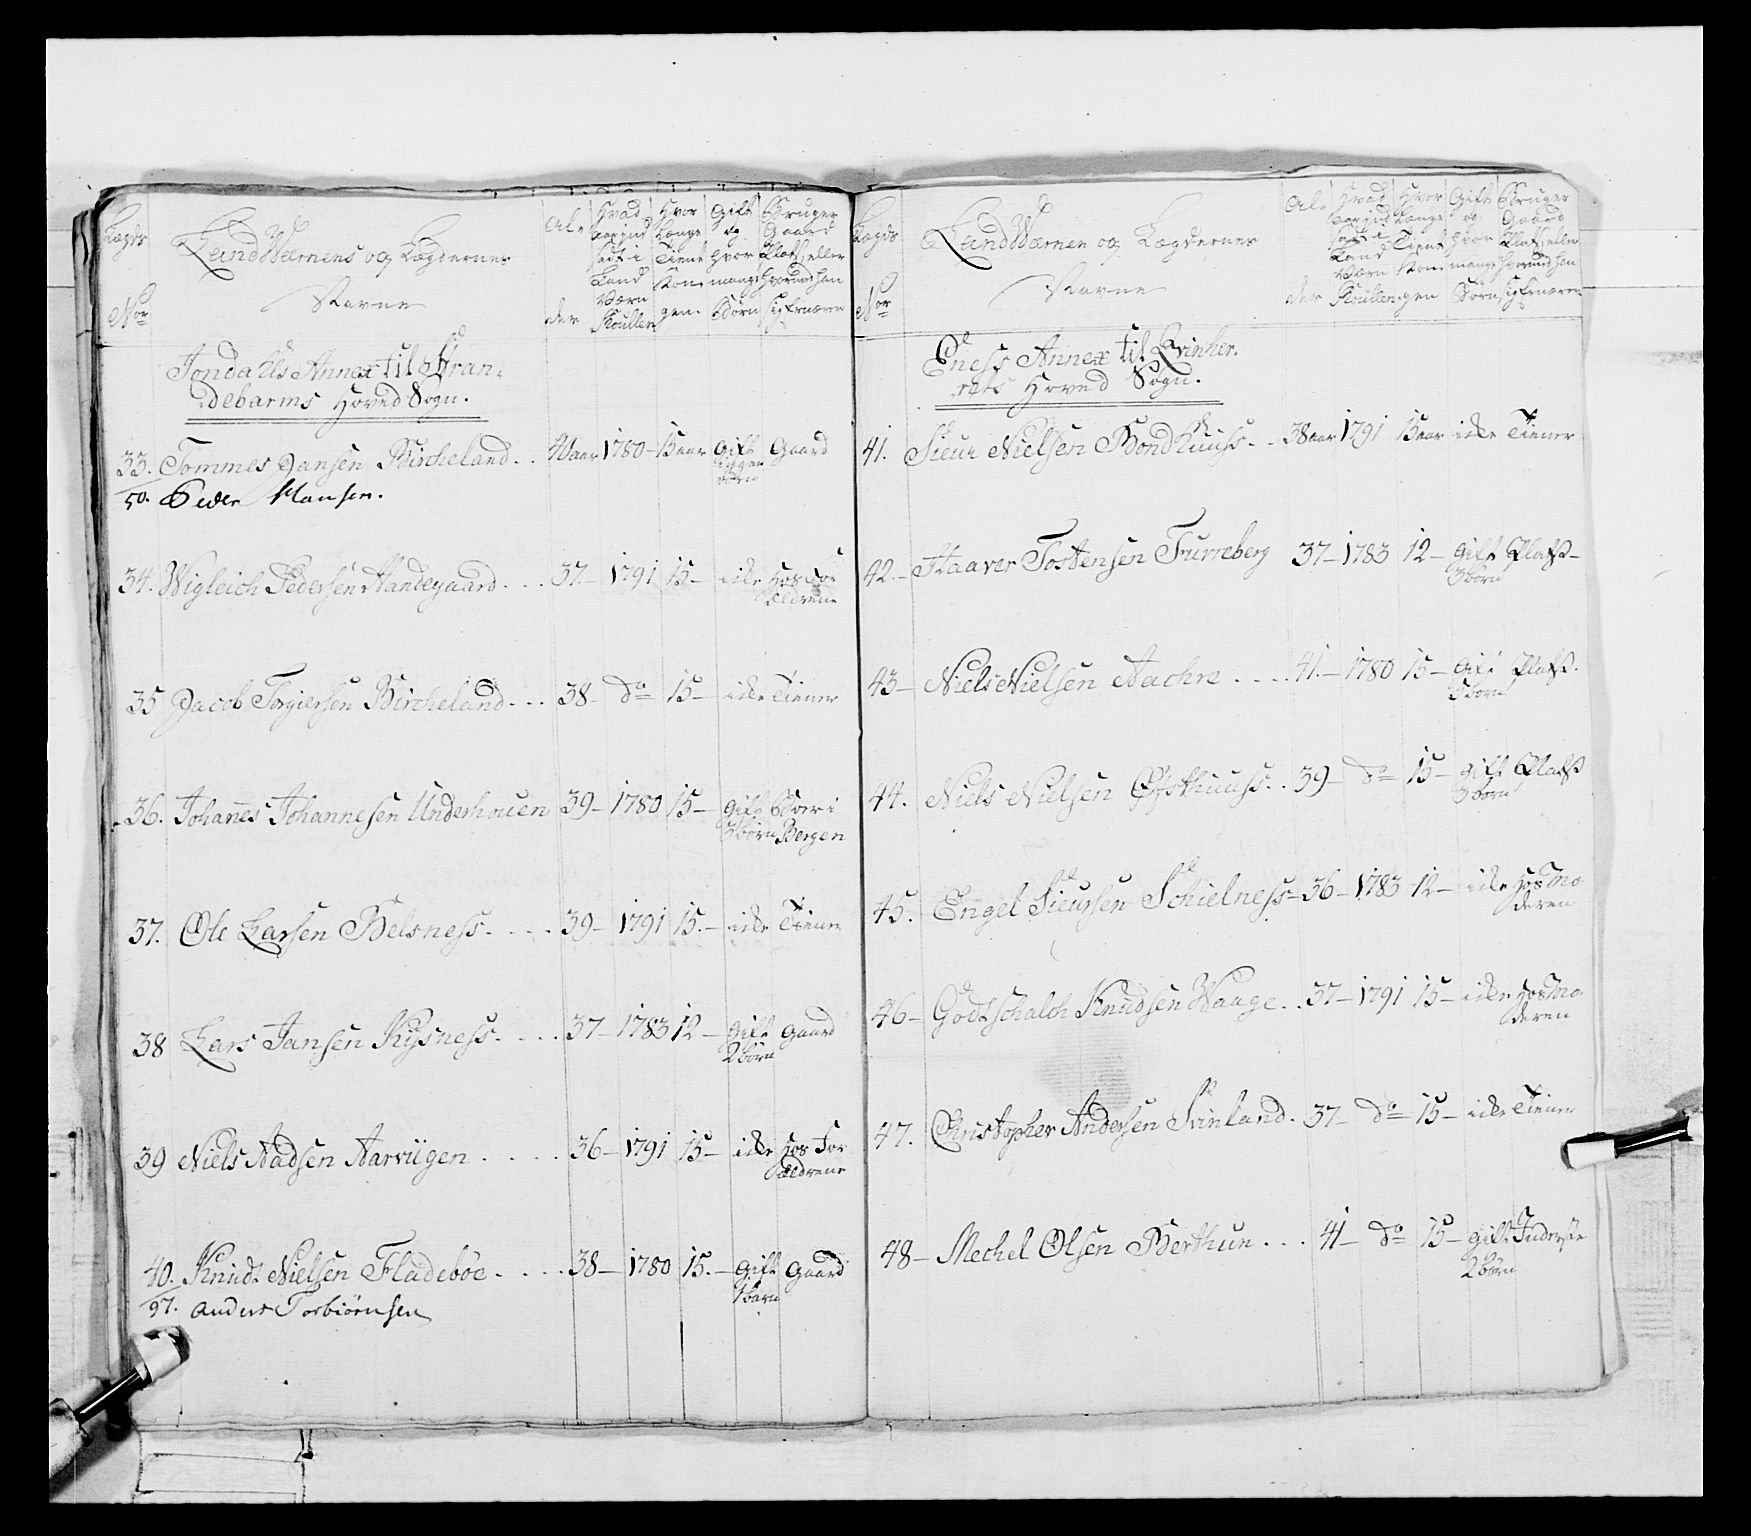 Lægds
Nor
LandWærnens og Lægdernes
Navne
Al-
der
Hvad
Aar ind
sadt i
Land
Værn
Roullen
Hvor
Længe
Tient
Kon-
gen.
Gift
og
Hvor
mange
Børn
Bruger
Gaard
Plads, eller
Hvorved han
sig Ernærer
Jondalls Annex til Stran-
debarms Hoved Sogn.
33. Tommes Jansen Bircheland . . 40 aar 1780 - 15 aar Gift Gaard
ingen
børn
50. Peder Hansen.
34. Wigleich Pedersen Handegaard . . . 37 - 1791 15 - icke Hos For
Ældrene
35 Jacob Torgiersen Bircheland . . . 38 - do 15 - icke Tiener
36. Johanes Johannesen Underhouen 39 - 1780 15 - gift Boer i
3 børn Bergen
37. Ole Larsen Belsness . . . . 39 - 1791 15. - icke Tiener
38 Lars Jansen Kysness . . . . 37 - 1783 12 - gift gaard
2 børn
39 Niels Aadsen Aarviigen . . . . 36 - 1791 15 - icke hos For
Ældrene
40. Knudt Nielsen Fladebøe . . . . 38 - 1780 15. - gift Gaard
1 barn
97. Anders Torbiørnsen
Lægds
Nor
LandWærnen og Lægdernes
Navne
Al-
der
Hvad
Aar ind
sadt i
Land
Værn
Roullen
Hvor
Længe
Tient
Kon-
gen
Gift
og
Hvor
mange
Børn
Bruger
Gaard
Plads, eller
Hvorved han
sig Ernærer
Eness Annex til Qvinher-
reds Hoved Sogn.
41. Sieur Nielsen Bondhuus . . 38 aar 1791 15 aar icke Tiener
42. - Haaver Tostensen Furreberg 37 - 1783 12 - gift Plads -
3 børn
43 - Niels Nielsen Aachre . . . . 41. - 1780 15 - gift Plads.
3 børn
44. Niels Nielsen Øfsthuus . . 39 - do 15 - gift Plads
3 børn
45. Engel Sieursen Schielness - 36 - 1783 12 - icke hos Mo
deren
46 - Godtschalch Knudsen Waage . . 37 - 1791 15 - icke hos Mo
deren
47. Christopher Andersen Svinland . 37 - do 15 - icke Tiener
48 - Mechel Olsen Berthun . . . 41 - do 15 - gift Inderste
2 børn